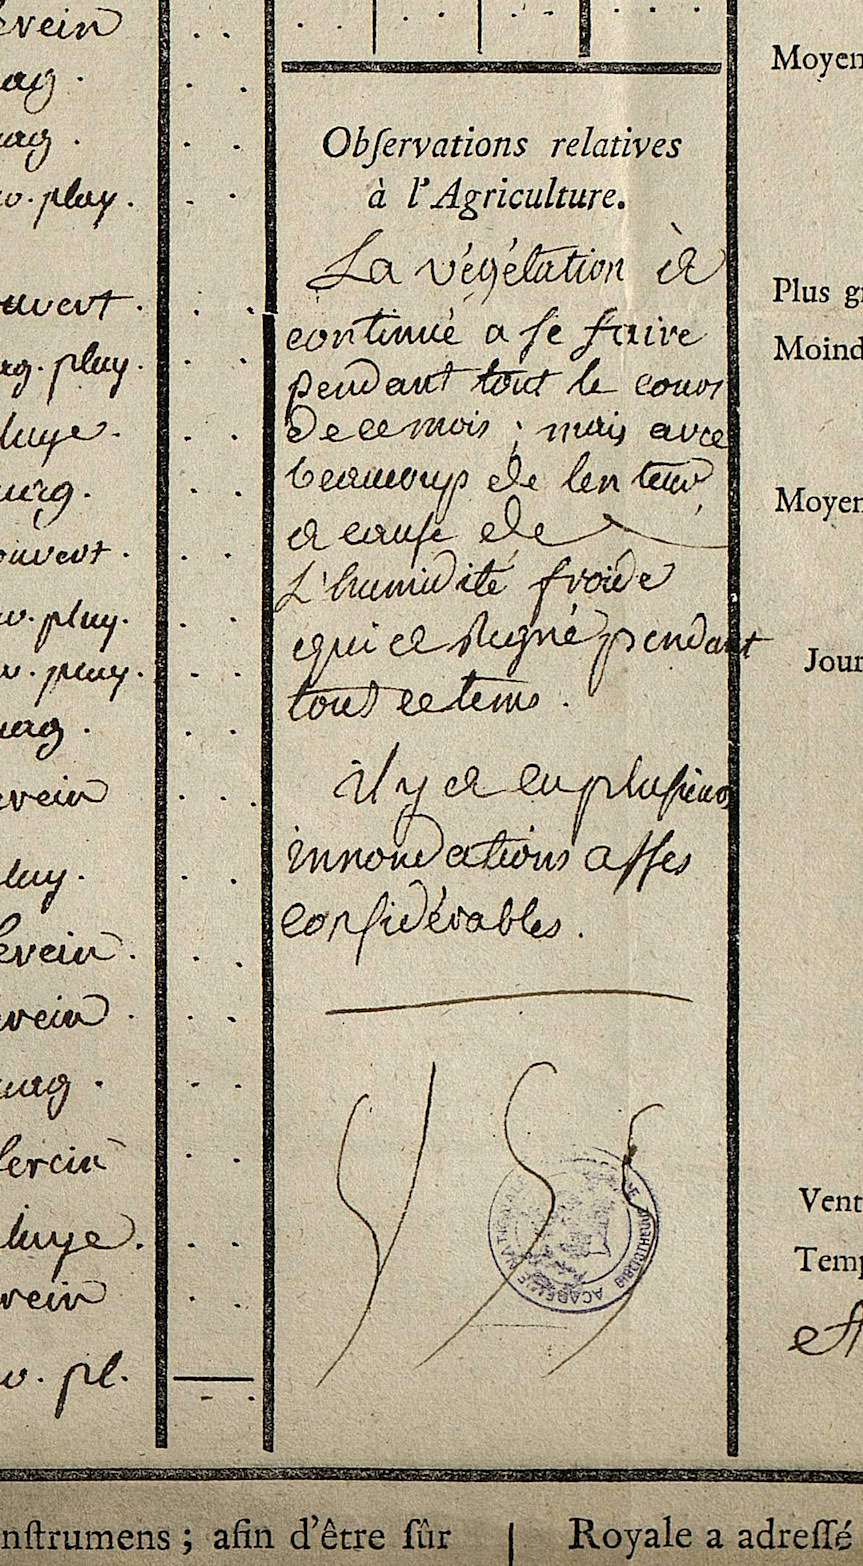 serein
nuag.
nuag.
nu. pluy.
couvert.
nuag. pluy.
pluye.
nuag.
couvert.
nu. pluy.
nu. pluy.
nuag.
serein
pluy.
serein.
serein.
nuag.
serein
pluye.
serein
nu. pl.
Obſervations relatives
à l'Agriculture.
La végétation à
continué a ſe faire
pendant tout le cours
de ce mois; mais avec
beaucoup de lenteur
a cauſe de
L'humidité froide
qui a Regné pendant
tout ce tems.
il y a eu pluſieurs
innondations aſſes
conſidérables.
ACADÉMIE NATIONALE DE
BIBLIOTHEQUE
Moyen
Plus gr
Moind
Moyen
Jour
Vent
Temp
nſtrumens; afin d'être ſûr
Royale a adreſſé